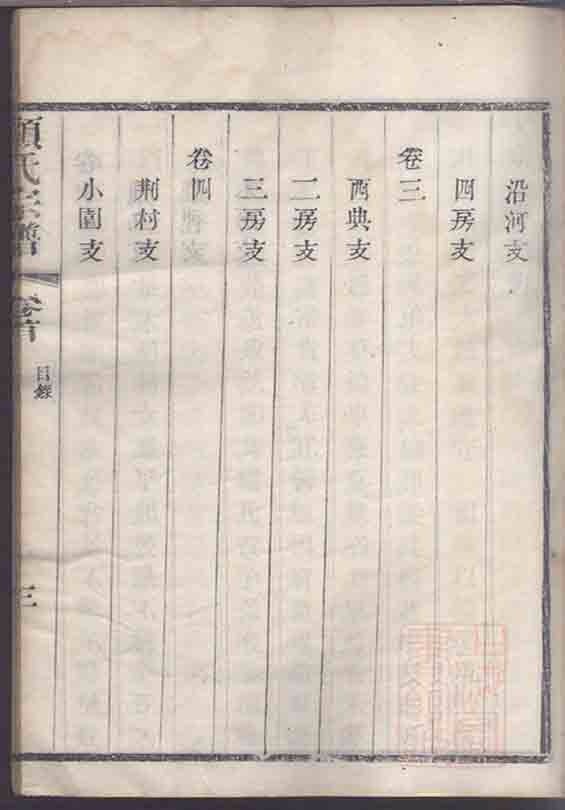 沿河支
四房支
卷三
西典支
二房支
三房支
卷四
荆村支
小園支
氏宗譜
卷首
目錄
三